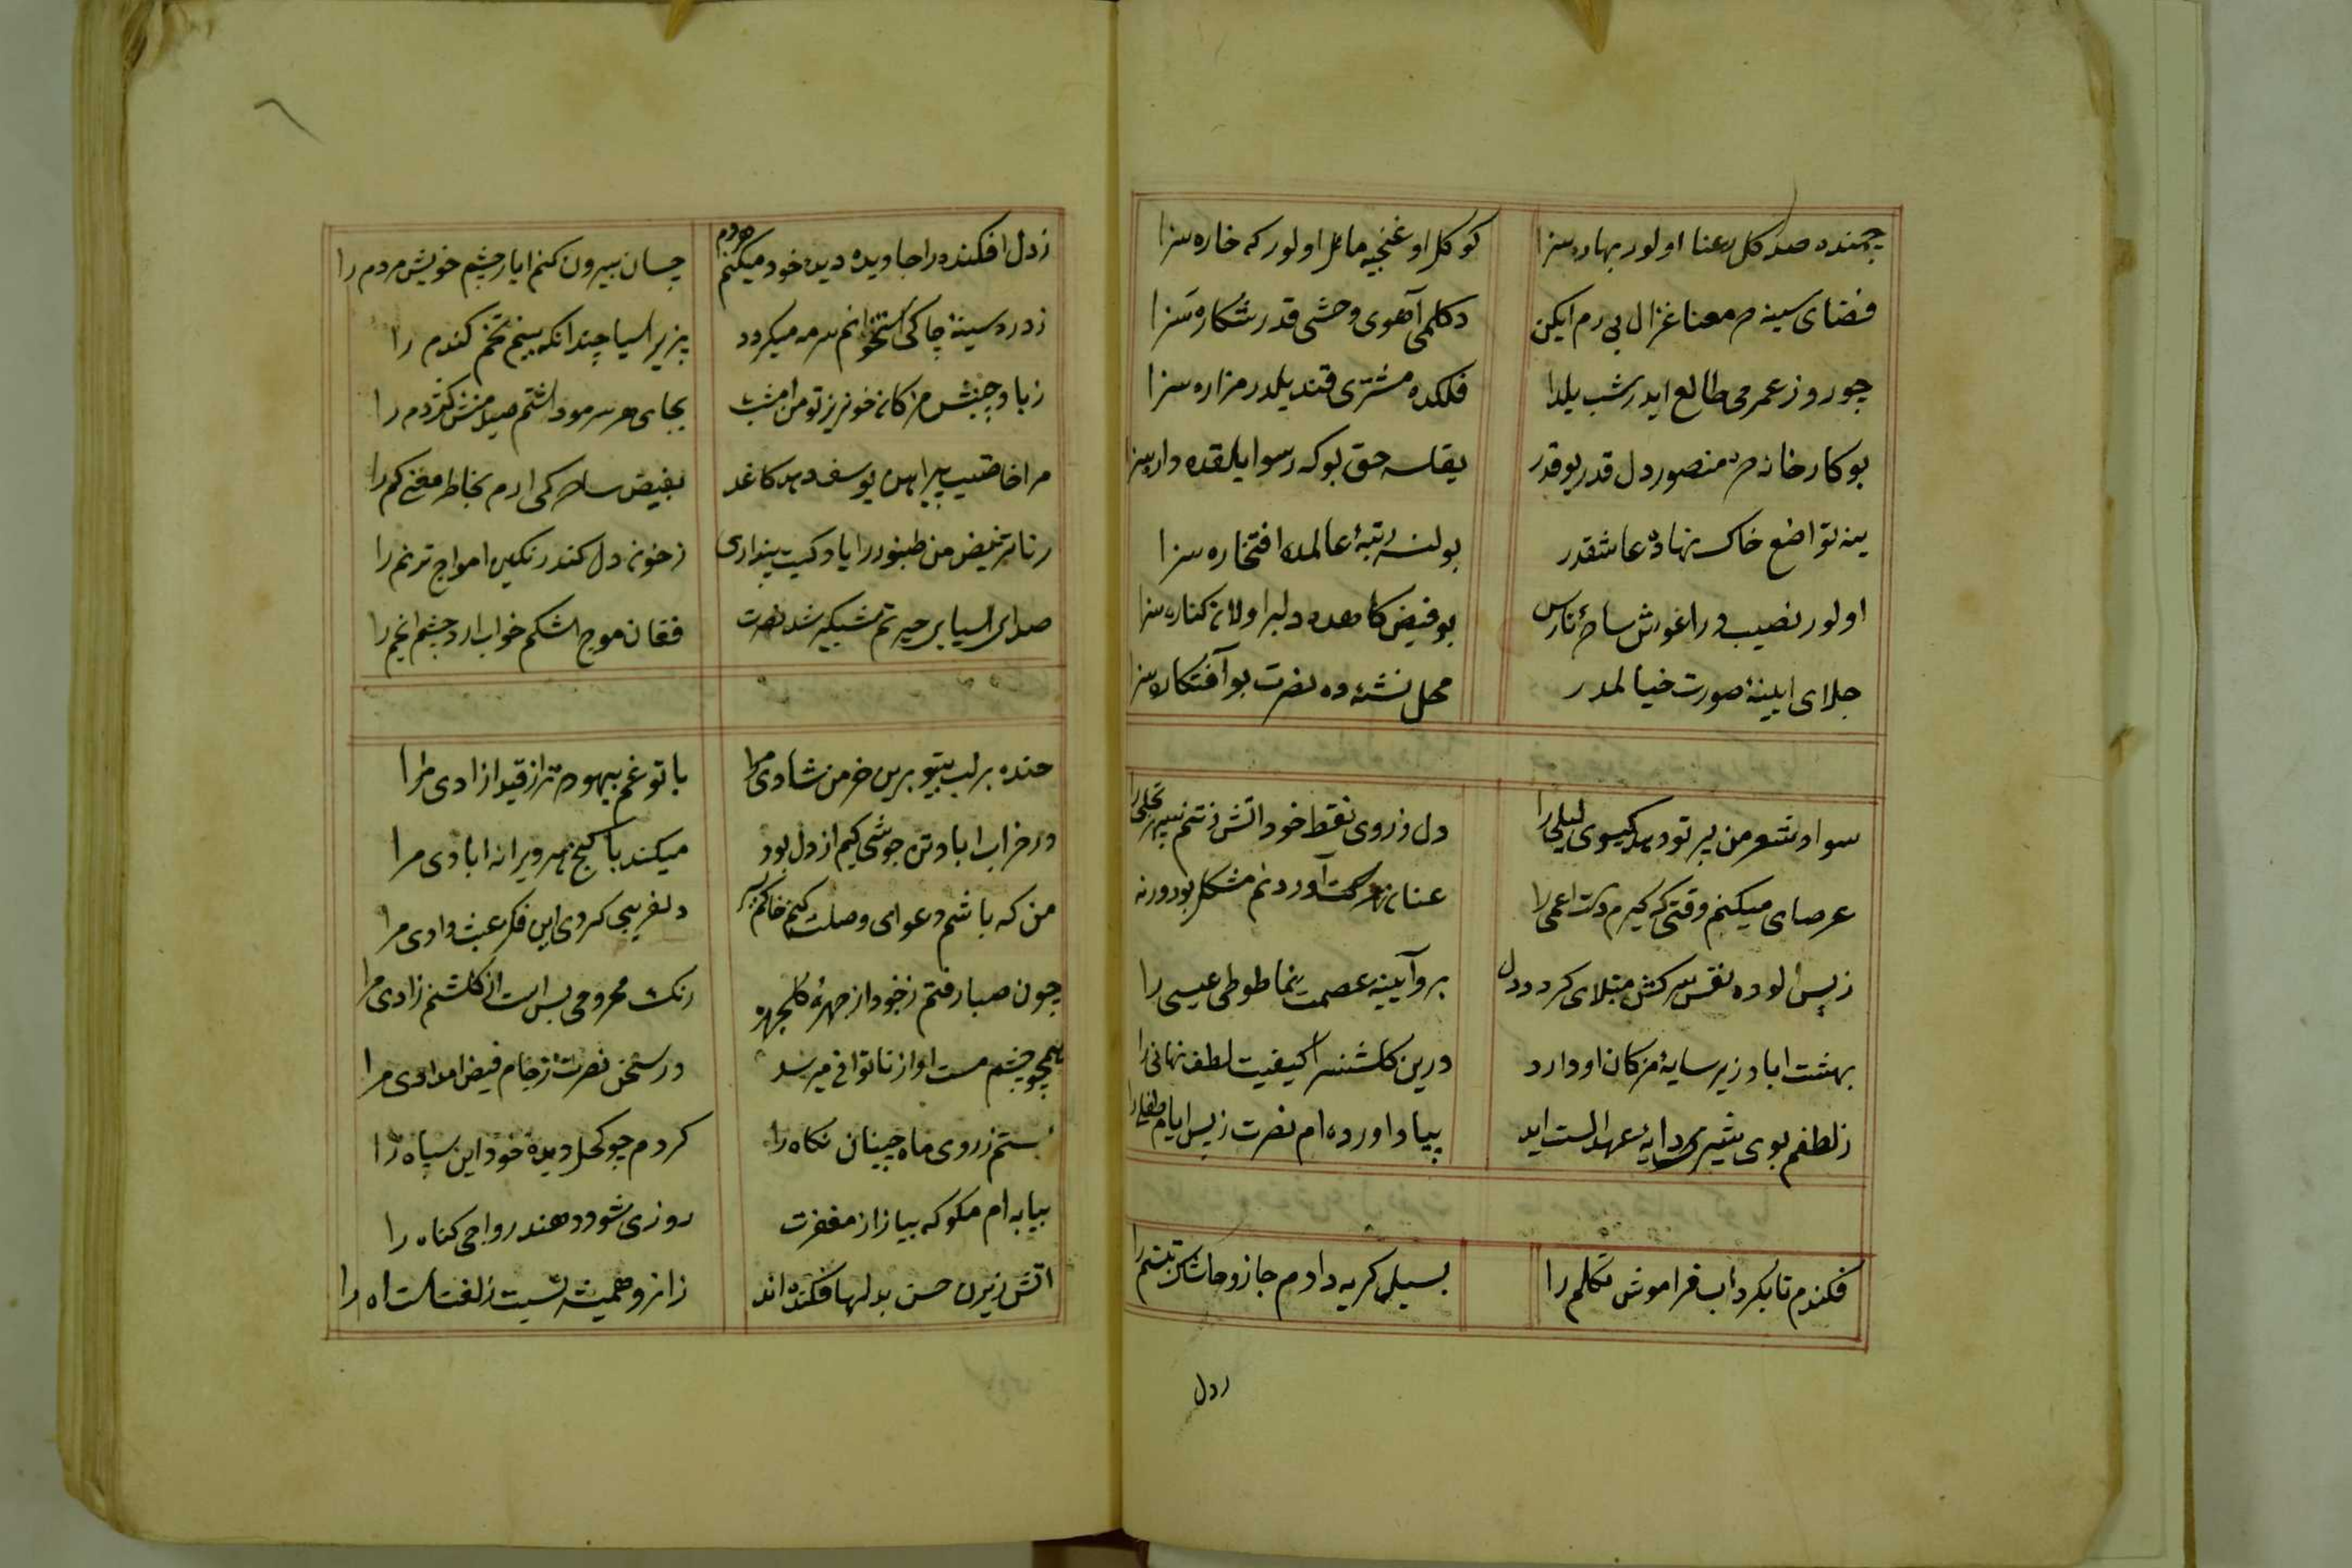 چمنده صد کل رعنا اولور بهاره سزا
کوکل او غنچیه مائل اولور که خاره سزا
فضای سینه م معنا غزال بی رم ایکن
دکلمی آهوی وحشی قدر شکاره سزا
چو روز عمرمی طالع ایدر شب یلدا
فلکده مشتری قندیلدر مزاره سزا
بوکارخانه م منصور دل قدر بوقدر
یقلسه حق بوکه رسوایلقده داره سزا
ینه تواضع خاک نهاده عاشقدر
بولنسه رتبهٔ عالمده افتخاره سزا
اولور نصیب در اغوش ساحر نارس
بوفیض کاهده دلبر اولان کناره سزا
جلای ایینهٔ صورت خیالمدر
محل نشئه ده نصرت بو آفتکاره سزا
سواد شعر من پرتو دهد کیسوی لیلی را
دل زروی نقط خود اتش زنتم سر تجلی را
عرصای میکنم وقتی که کیرم دست اعمی را
عنان آوردنم مشکل بود ورنه
زبس الوده نفس سرکش مبتلای کرد دل
برو آیینه عصمت نما طوطی عیسی را
بهشت اباد زیر سایهٔ مژکان او دارد
درین کلشنسرا کیفیت لطف نهانی را
زلطفم بوی شیر دایهٔ عهد الست اید
بیاد اورده ام نصرت زبس ایام طفلی را
فکندم تا بکرداب فراموش تکلم را
بسیل کریه دادم خار و خاشاک تبسم را
ردل
زدل افکنده را جا دیده دیده خود میکنم مردم
چسان بیرون کنم ایا زچشم خویش مردم را
زدرد سینهٔ چاکی استخوانم سرمه میکردد
بزیر اسیا چندانکه بینم تخم کندم را
زیاد جنبش مژکان خونریز تو من امشب
بجای هر سر مو داشتم صد نیش کژدم را
مرا خاصیت پیراهن یوسف دهد کاغد
بفیض ساحر کی ارم بخاطر معنی کم را
رتار نبض من طنبور را یاد کیت پنداری
زخون دل کند رنکین امواج ترنم را
صدای اسیای حیرتم شبکیر شد نصرت
فغان موج اشکم خواب ارد چشم انجم را
خنده بر لب بیتو برین خرمن شادی مرا
با تو غم بیهوده تر از قید ازادی مرا
در خراب اباد تن جوشی کیم از دل بود
میکند با کنج هر ویرانه ابادی مرا
من که باشم دعوای وصلت کنم خاکم بسر
دلفریبی کردی این فکر عبث دادی مرا
چون صبا رفتم زخود از چهرهٔ کلچهره
رنک محرومی بس است از کلشنم زادی مرا
همچو چشم مست او از ناتوانی میرسد
در سخن نصرت زجام فیض امدادی مرا
بستم زروی ماه جبینان نکاه را
کردم چو کحل دیدهٔ خود این سیاه را
بیابه ام مکو که بیازار مغفرت
روزی شود دهند رواجی کناه را
اتش زنیرن حسن بدلها فکنده اند
زانرو همیشه نسبت زلفست اه را